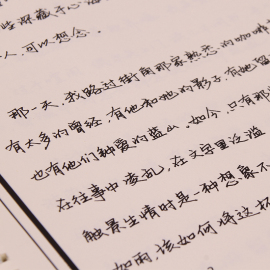 些深藏于心
人，可以想念。
那一天，我路过街角那家熟悉的咖啡
有太多的曾经，有他和她的影子，有她留
也有他们钟爱的蓝山。如今，只有那
在往事中凌乱，在文字里泛滥
触景生情时是一种想象不
如雨，该如何将这杯